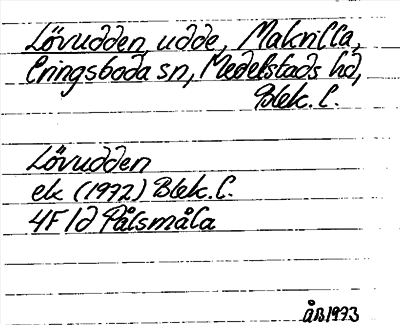 Lövudden, udde, Makrilla,
Eringsboda sn, Medelstads hd,
Blek. l.
Lövudden
ek (1972) Blek. l.
4F 1d Pålsmåla
ÅB 1973